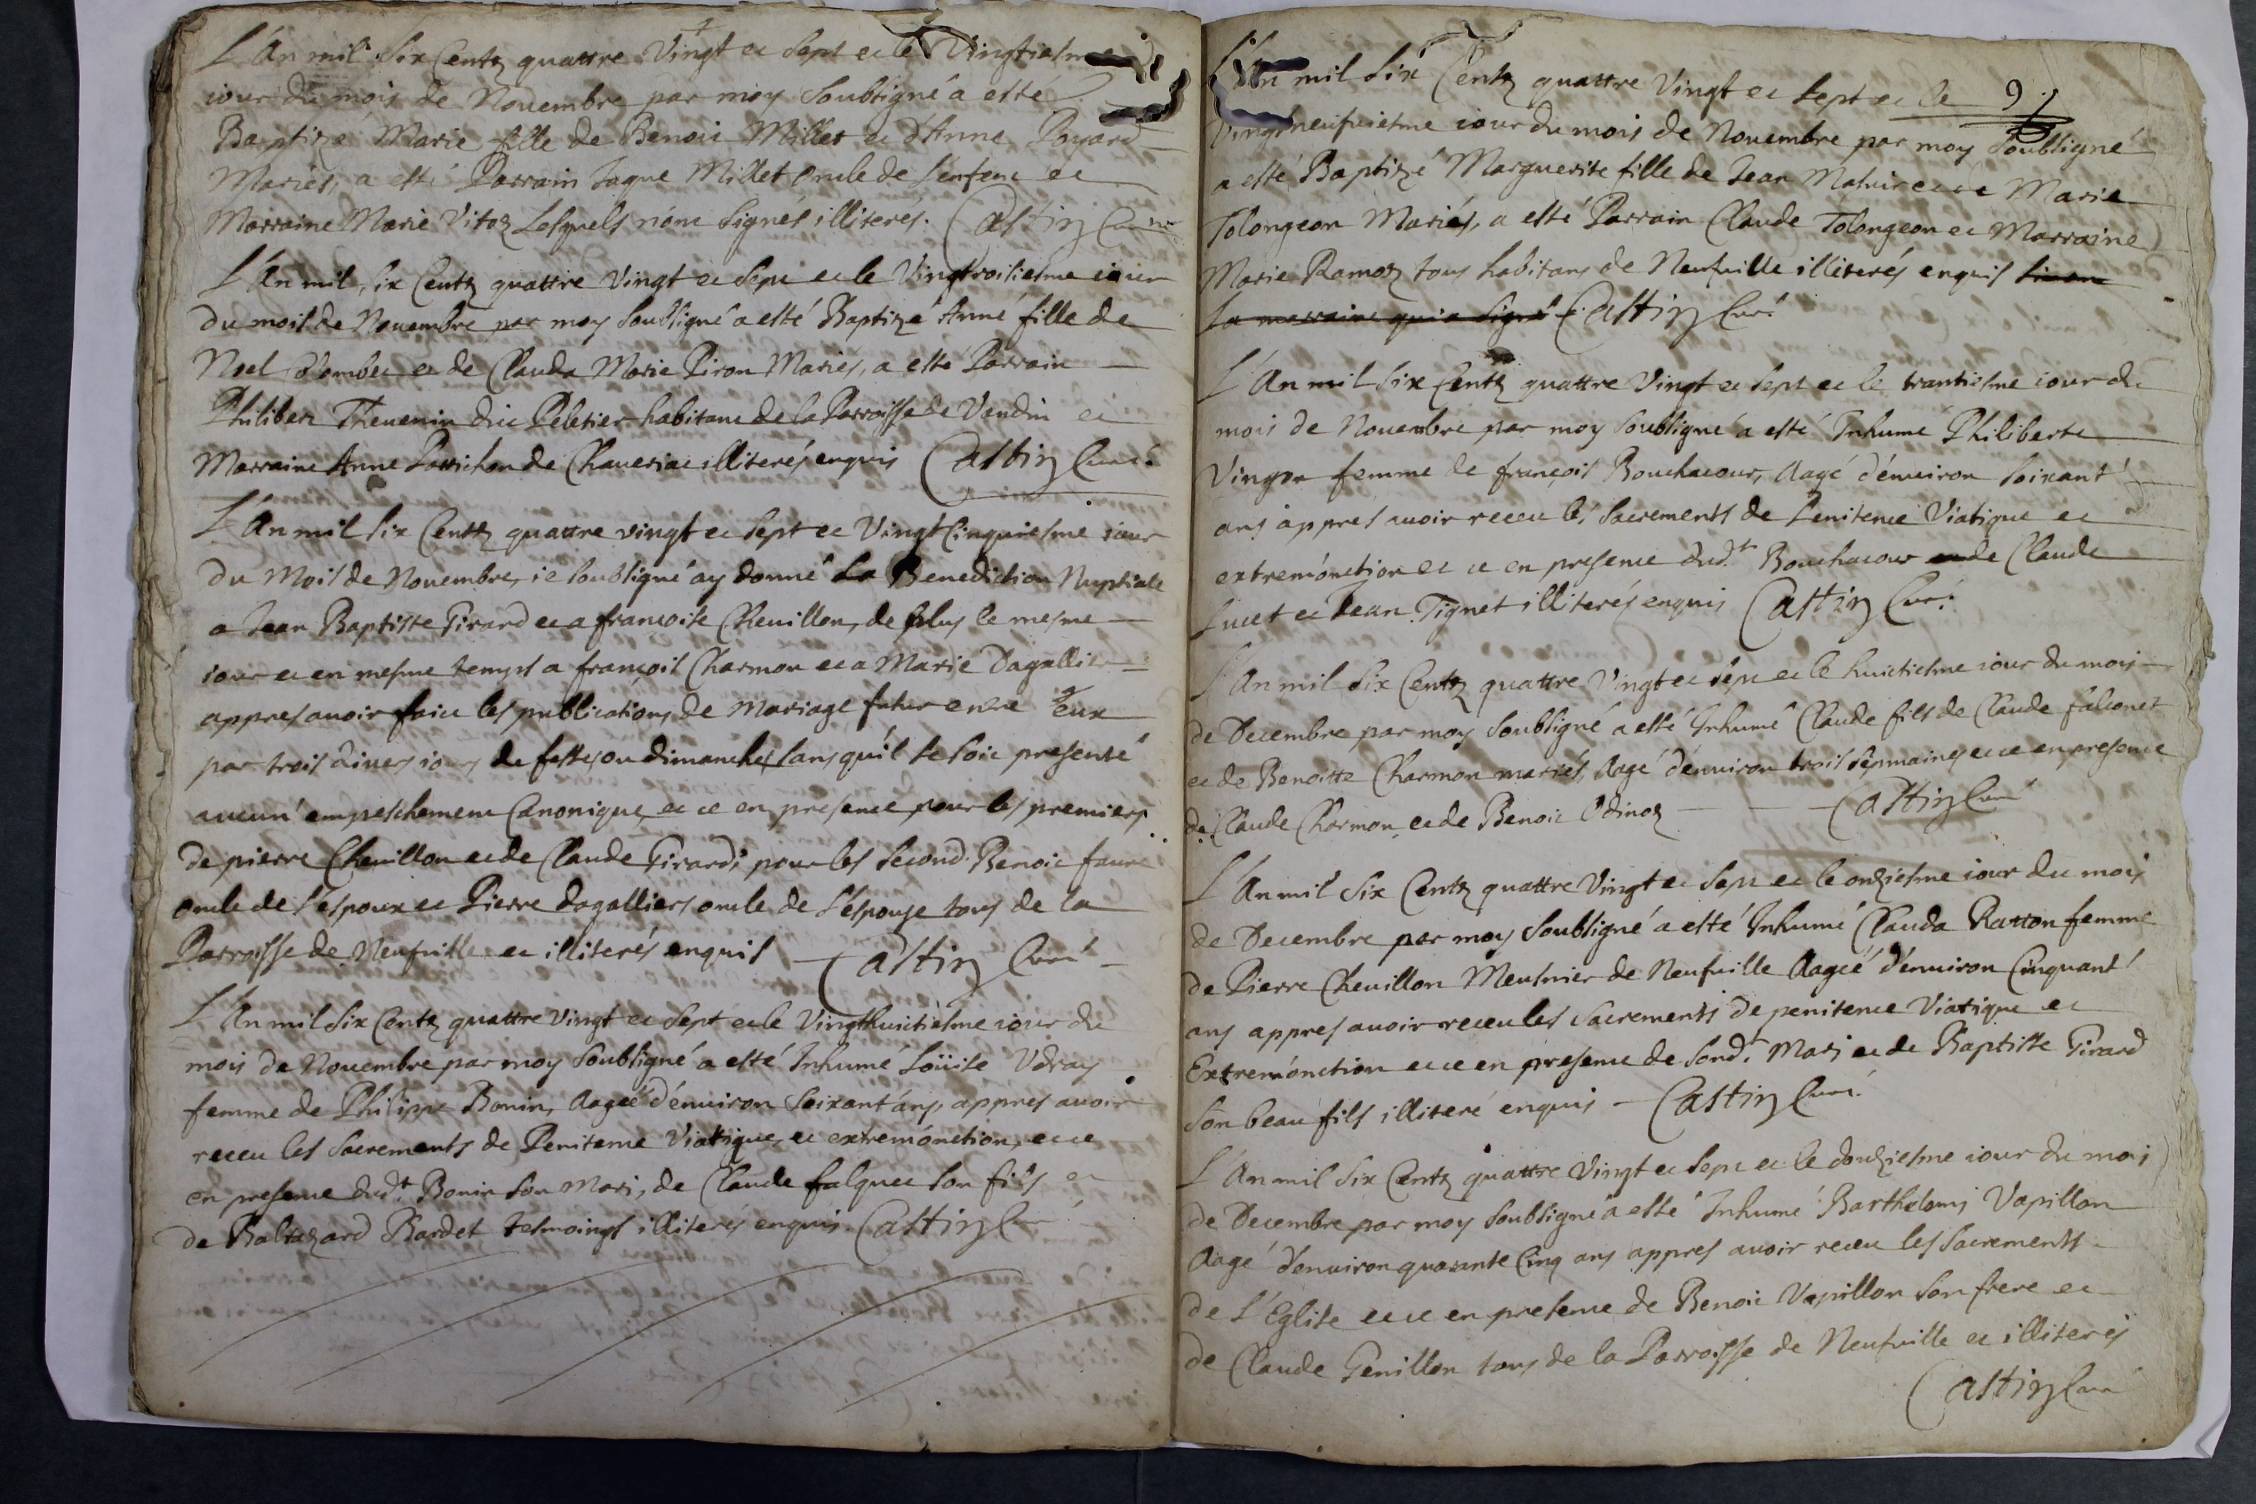 L'An mil Six Centz quattre Vingt et Sept et le Vingtiesme
iour du mois de Nouembre par moy Soubsigné a esté
Baptizé Marie fille de Benoit Millet et d'Anne Poyard
Mariés, a esté Parrain Jaque Millet oncle de l'enfant et
Marraine Marie Vitoz Lesquels n'ont signés illiterés. Castin Curé
L'An mil, six Centz quattre Vingt et Sept et le Vingtroisiesme iour
du mois de Nouembre par moy Soubsigné a esté Baptizé Anne fille de
Noel d'ombet et de Clauda Marie Piron Mariés, a esté Parrain
Philibert Theuenin dit Peletier habitant de la Parroisse de Vandin et
Marraine Anne Perrichon de Chaueriat illiterés enquis Castin Curé
L'An mil six Centz quattre vingt et sept et Vingt Cinquiesme iour
du Mois de Nouembre, ie soubsigné ay donné La Benediction Nuptiale
a Jean Baptiste Girard et a françoise Cheuillon, de plus le mesme
iour et en mesme temps a françois Charmon et a Marie Dagallier
appres auoir faict les publications de Mariage futur entre eux
par trois diuers iours de festes ou dimanches sans qu'il se soit presenté
aucun empeschement Canonique, et ce en presence pour les premiers
de pierre Cheuillon et de Claude Girard, pour les second. Benoit faure
oncle de l'espoux et Pierre dagalliers oncle de L'espouse tous de la
Parroisse de Neufuille et illiterés enquis Castin Curé
L'An mil Six Centz quattre Vingt et Sept et le Vingthuictiesme iour du
mois de Nouembre par moy Soubsigné a esté Inhumé Loüise Vdray
femme de Philippe Bonin, Aageé d'enuiron Soixant'ans, appres auoir
receu les Sacrements de Penitence Viatique, et extremónction, et ce
en presence dud.t Bonin son Mari, de Claude falquet son fils et
de Baltazard Bardet tesmoings illiterés enquis Castin Curé
9
L'An mil Six Centz quattre Vingt et sept et le
Vingtneufuiesme iour du mois de Nouembre par moy Soubsigné
a esté Baptizé Marguerite fille de Jean Matuir et de Marie
Tolongeon Mariés, a esté Parrain Claude Tolongeon et Marraine
Marie Ramoz tous habitans de Neufuille illiterés enquis sinon
la marraine qui a signé Castin Curé
L'An mil Six Centz quattre Vingt et Sept et le trantiesme iour du
mois de Nouembre par moy Soubsigné a esté Inhumé Philiberte
Vingon femme de françois Bouchacour, Aagé d'enuiron soixant'
ans appres auoir receu les Sacrements de Penitence Viatique et
extremónction et ce en presence dud.t Bouchacour et de Claude
Lucet et Jean Tignet illiterés enquis Castin Curé
L'An mil Six Centz quattre Vingt et Sept et le huictiesme iour du mois
de Decembre par moy Soubsigné a esté Inhumé Claude fils de Claude falconet
et de Benoitte Charmon mariés, Aagé d'enuiron trois sepmaines et ce en presence
de Claude Charmon, et de Benoit Odinoz Castin Curé
L'An mil Six Centz quattre Vingt et Sept et le onziesme iour du mois
de Decembre par moy Soubsigné a esté Inhumé Clauda Ratton femme
de Pierre Cheuillon Meusnier de Neufuille Aageé d'enuiron Cinquant'
ans appres auoir receu les Sacrements de penitence Viatique et
Extremónction et ce en presence de sond.t Mari et de Baptiste Girard
Son beau fils illiteré enquis Castin Curé
L'An mil Six Centz quattre Vingt et Sept et le douziesme iour du mois
de Decembre par moy Soubsigné a esté Inhumé Barthelemi Vapillon
Aagé d'enuiron quarante Cinq ans appres auoir receu les Sacrements
de L'Eglise et ce en presence de Benoit Vapillon son frere et
de Claude Genillon tous de la Parroisse de Neufuille et illiterés
Castin Curé